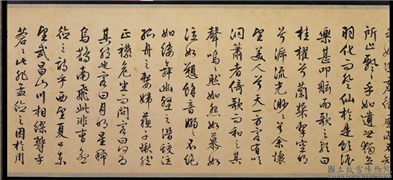 所止飄飄乎如遺世獨立
羽化而登仙於是飲酒
樂甚扣舷而歌之歌曰
桂棹兮蘭槳擊空明
兮泝流光渺渺兮余懷
望美人兮天一方客有吹
洞簫者倚歌而和之其
聲嗚嗚然如怨如慕如
泣如訴餘音嫋嫋不絕
如縷舞幽壑之潛蛟泣
孤舟之嫠婦蘇子愀然
正襟危坐而問客曰何為
其然也客曰月明星稀
烏鵲南飛此非曹孟
德之詩乎西望夏口東
望武昌山川相繆鬱乎
蒼蒼此非孟德之困於周